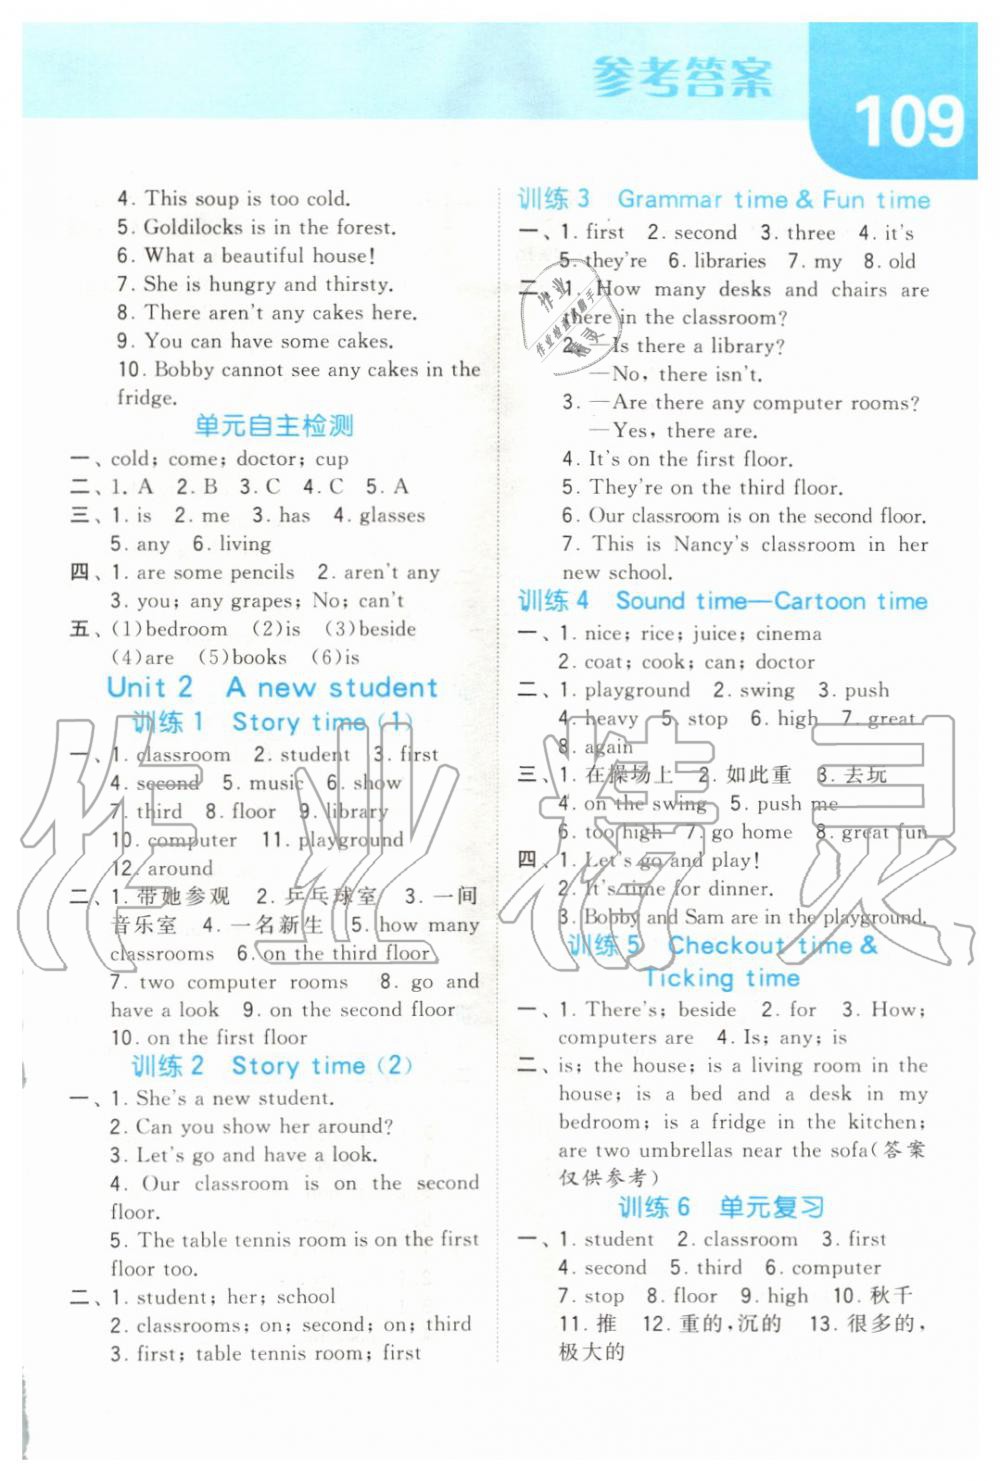 参考答案
109
4. This soup is too cold.
5. Goldilocks is in the forest.
6. What a beautiful house!
7. She is hungry and thirsty.
8. There aren't any cakes here.
9. You can have some cakes.
10. Bobby cannot see any cakes in the
fridge.
单元自主检测
一、cold; come; doctor; cup
二、1. A 2. B 3. C 4. C 5. A
三、1. is 2. me 3. has 4. glasses
5. any 6. living
四、1. are some pencils 2. aren't any
3. you; any grapes; No; can't
五、(1)bedroom (2)is (3)beside
(4)are (5)books (6)is
Unit 2 A new student
训练1 Story time (1)
一、1. classroom 2. student 3. first
4. second 5. music 6. show
7. third 8. floor 9. library
10. computer 11. playground
12. around
二、1. 带她参观 2. 乒乓球室 3. 一间
音乐室 4. 一名新生 5. how many
classrooms 6. on the third floor
7. two computer rooms 8. go and
have a look 9. on the second floor
10. on the first floor
训练2 Story time (2)
一、1. She's a new student.
2. Can you show her around?
3. Let's go and have a look.
4. Our classroom is on the second
floor.
5. The table tennis room is on the first
floor too.
二、1. student; her; school
2. classrooms; on; second; on; third
3. first; table tennis room; first
训练3 Grammar time & Fun time
一、1. first 2. second 3. three 4. it's
5. they're 6. libraries 7. my 8. old
二、1. How many desks and chairs are
there in the classroom?
2. —Is there a library?
—No, there isn't.
3. —Are there any computer rooms?
—Yes, there are.
4. It's on the first floor.
5. They're on the third floor.
6. Our classroom is on the second floor.
7. This is Nancy's classroom in her
new school.
训练4 Sound time—Cartoon time
一、1. nice; rice; juice; cinema
2. coat; cook; can; doctor
二、1. playground 2. swing 3. push
4. heavy 5. stop 6. high 7. great
8. again
三、1. 在操场上 2. 如此重 3. 去玩
4. on the swing 5. push me
6. too high 7. go home 8. great fun
四、1. Let's go and play!
2. It's time for dinner.
3. Bobby and Sam are in the playground.
训练5 Checkout time &
Ticking time
一、1. There's; beside 2. for 3. How;
computers are 4. Is; any; is
二、is; the house; is a living room in the
house; is a bed and a desk in my
bedroom; is a fridge in the kitchen;
are two umbrellas near the sofa(答案
仅供参考)
训练6 单元复习
一、1. student 2. classroom 3. first
4. second 5. third 6. computer
7. stop 8. floor 9. high 10. 秋千
11. 推 12. 重的,沉的 13. 很多的,
极大的
作业精灵